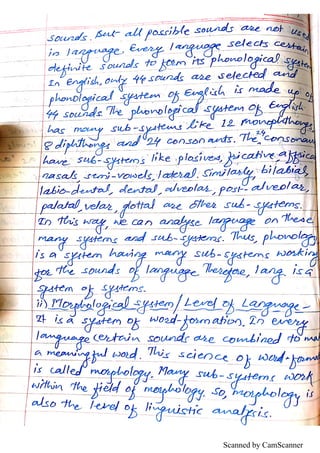 sounds. But all possible sounds are not used
in language. Every language selects certain
definite sounds to form its phonological system
In English, only 44 sounds are selected and
phonological system of English is made up of
44 sounds. The phonological system of English
has many sub-systems like 12 monophthongs,
8 diphthongs and 24 consonants. The 24 consonants
have sub-systems like plosives, fricative, affricate
nasals, semi-vowels, lateral. Similarly, bilabial,
labio-dental, dental, alveolar, post-alveolar,
palatal, velar, glottal are other sub-systems.
In this way, we can analyse language on these
many systems and sub-systems. Thus, phonology
is a system having many sub-systems working
for the sounds of language. Therefore, lang is a
system of systems.
ii) Morphological system / Level of Language -
It is a system of word-formation. In every
language certain sounds are combined to make
a meaningful word. This science of word-forma
is called morphology. Many sub-systems work
within the field of morphology. So, morphology is
also the level of linguistic analysis.
Scanned by CamScanner